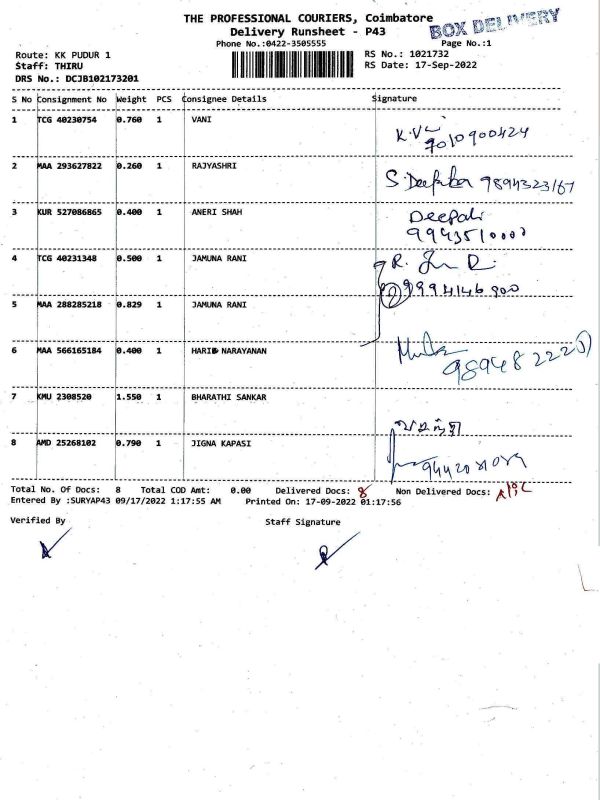 THE PROFESSIONAL COURIERS, Coimbatore
BOX DELIVERY
Delivery Runsheet - P43
Phone No.:0422-3505555
Page No.:1
Route: KK PUDUR 1
RS No.: 1021732
Staff: THIRU
RS Date: 17-Sep-2022
DRS No.: DCJB102173201
S No Consignment No Weight PCS Consignee Details Signature
1 TCG 40230754 0.760 1 VANI
7010900424
2 MAA 293627822 0.260 1 RAJYASHRI
9894323167
3 KUR 527086865 0.400 1 ANERI SHAH
Deepali
9943510000
4 TCG 40231348 0.500 1 JAMUNA RANI
9994146900
5 MAA 288285218 0.829 1 JAMUNA RANI
6 MAA 566165184 0.400 1 HARID NARAYANAN
7 KMU 2308520 1.550 1 BHARATHI SANKAR
8 AMD 25268102 0.790 1 JIGNA KAPASI
Total No. Of Docs: 8 Total COD Amt: 0.00 Delivered Docs: 8 Non Delivered Docs: Nil
Entered By :SURYAP43 09/17/2022 1:17:55 AM Printed On: 17-09-2022 01:17:56
Verified By
Staff Signature